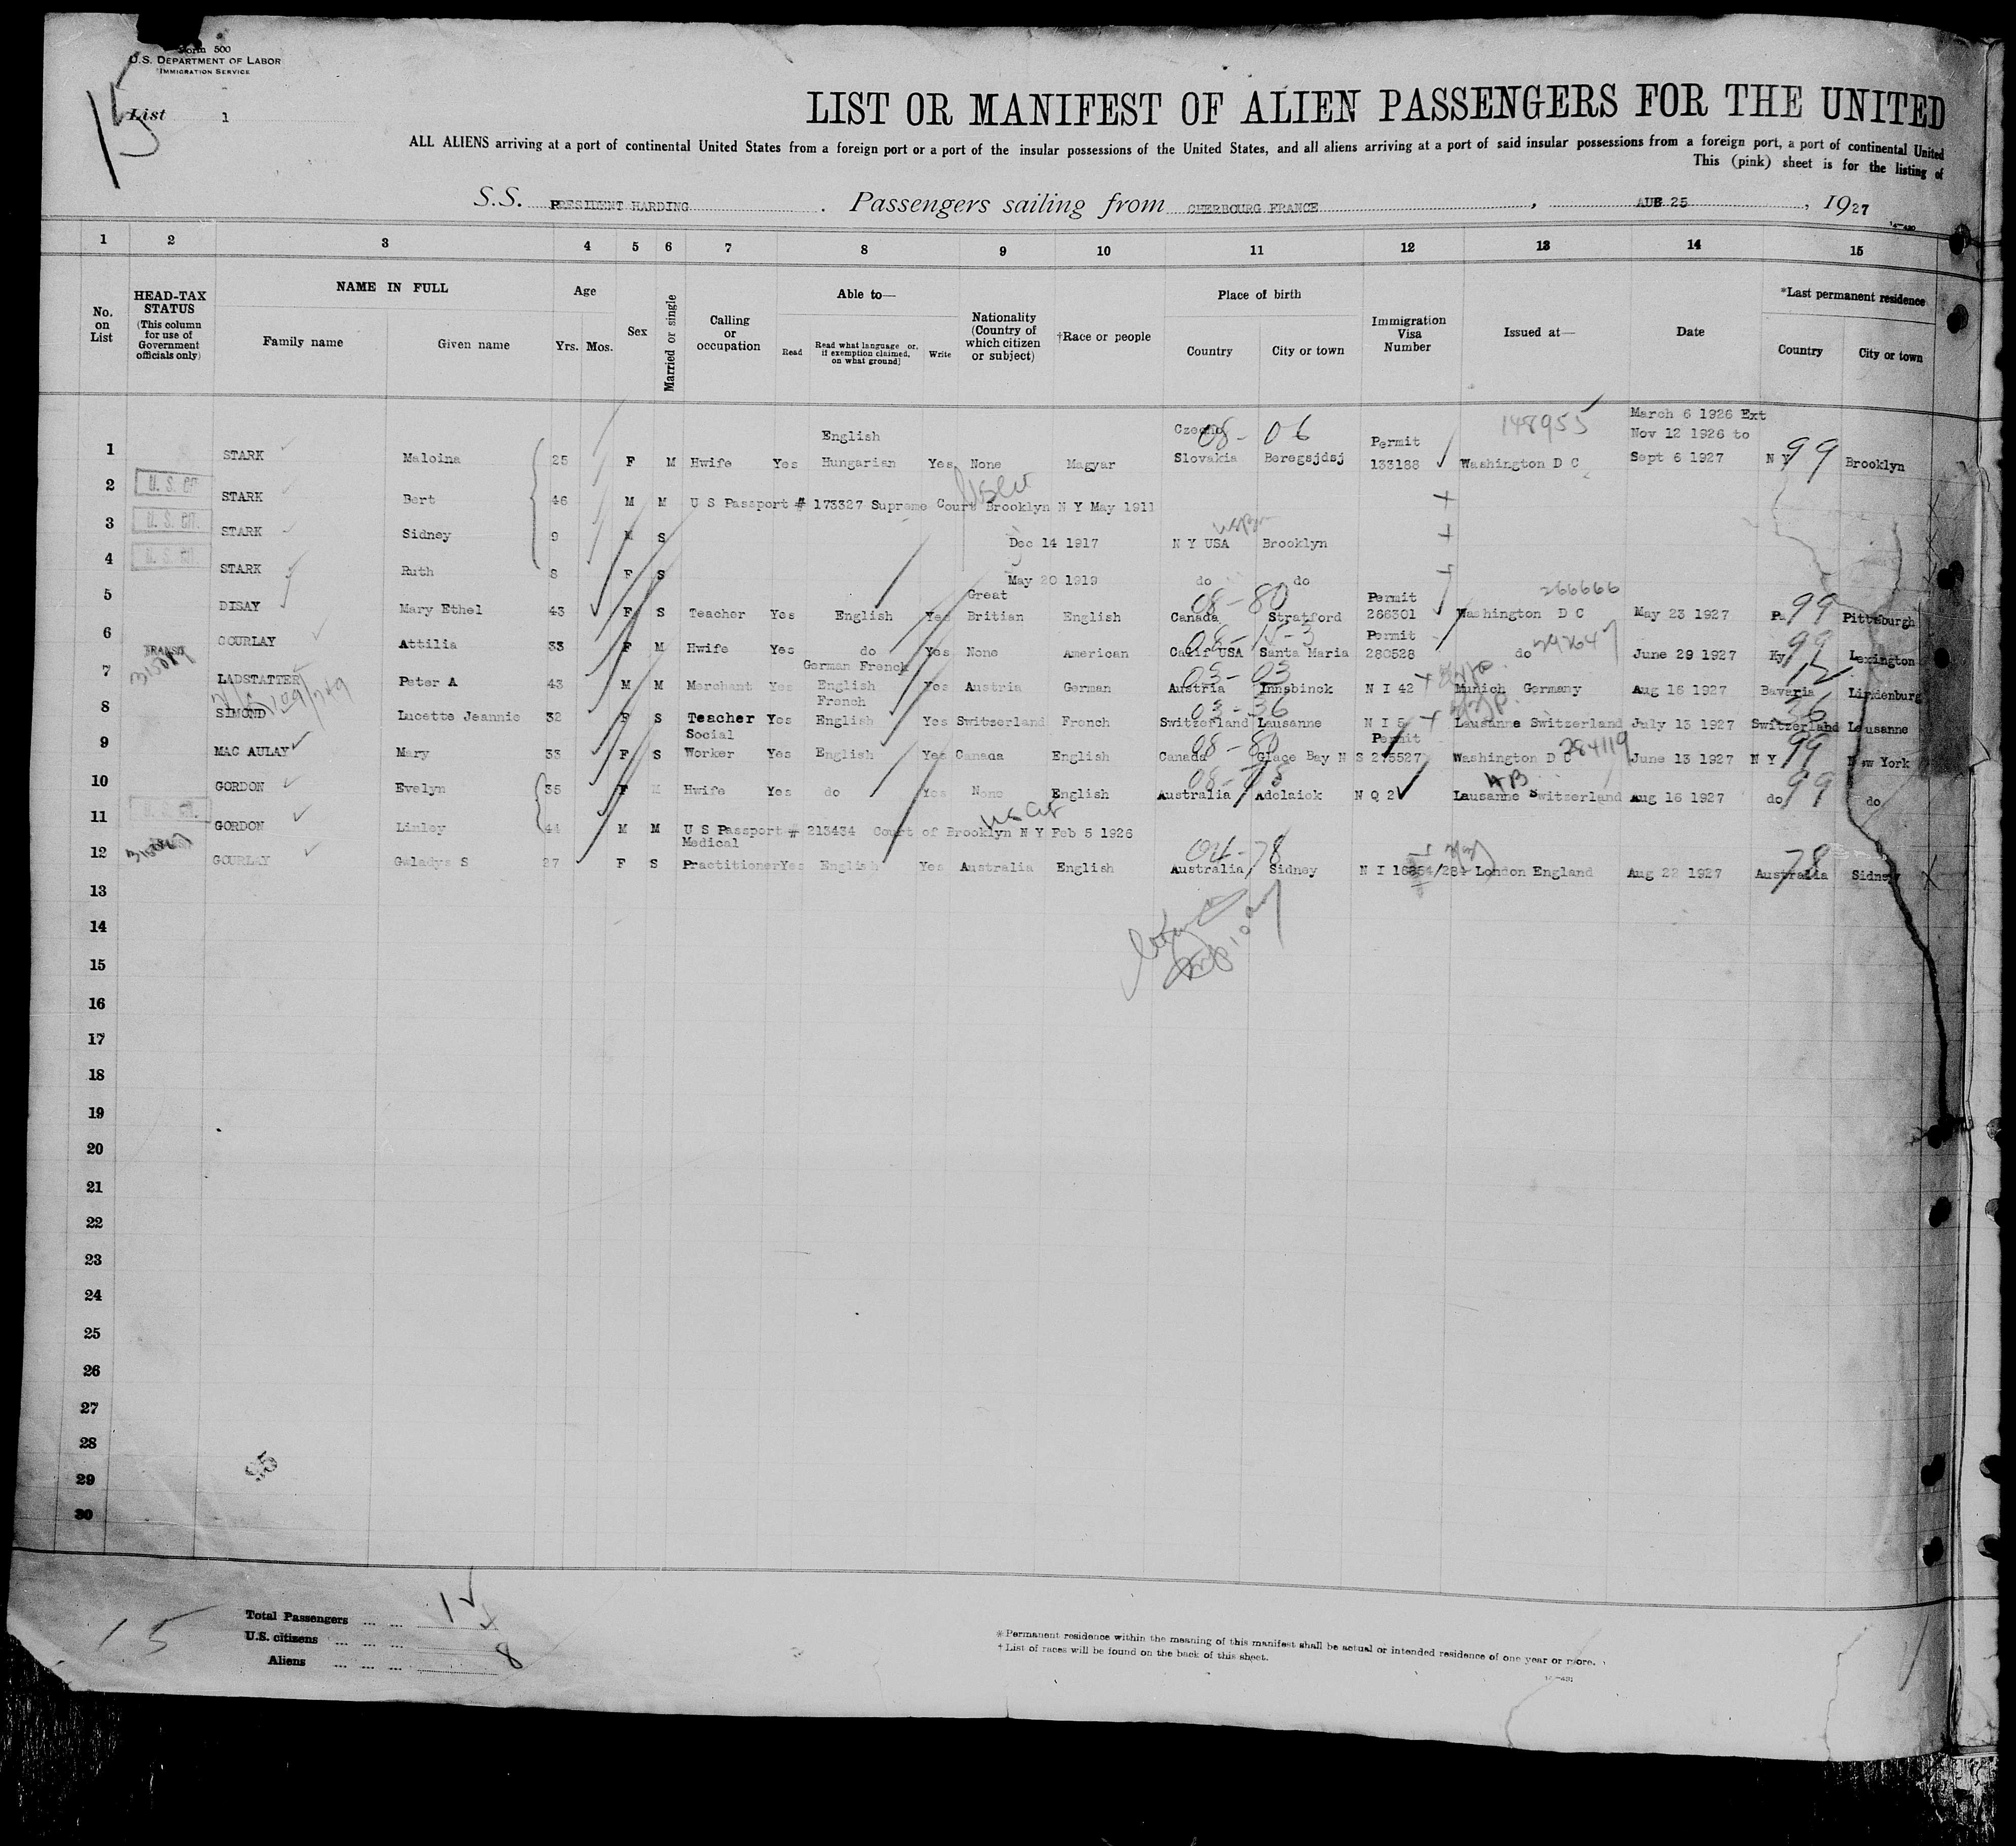 Form 500
U.S. DEPARTMENT OF LABOR
IMMIGRATION SERVICE
List 1
15
LIST OR MANIFEST OF ALIEN PASSENGERS FOR THE UNITED
ALL ALIENS arriving at a port of continental United States from a foreign port or a port of the insular possessions of the United States, and all aliens arriving at a port of said insular possessions from a foreign port, a port of continental United
This (pink) sheet is for the listing of
S.S. PRESIDENT HARDING. Passengers sailing from CHERBOURG FRANCE, AUG 25, 1927
1 2 3 4 5 6 7 8 9 10 11 12 13 14 15
No. on List
HEAD-TAX STATUS (This column for use of Government officials only)
NAME IN FULL
Family name Given name
Age
Yrs. Mos.
Sex
Married or single
Calling or occupation
Able to—
Read Read what language or, if exemption claimed, on what ground) Write
Nationality (Country of which citizen or subject)
†Race or people
Place of birth
Country City or town
Immigration Visa Number
Issued at—
Date
*Last permanent residence
Country City or town
148955 March 6 1926 Ext
English Czecho 08-06 Permit Nov 12 1926 to
1 STARK Maloina 25 F M Hwife Yes Hungarian Yes None Magyar Slovakia Beregsjdsj 133188 Washington D C Sept 6 1927 N Y 99 Brooklyn
2 U. S. CIT. STARK Bert 46 M M U S Passport # 173327 Supreme Court Brooklyn N Y May 1911
3 U. S. CIT. STARK Sidney 9 M S Dec 14 1917 N Y USA Brooklyn
4 U. S. CIT. STARK Ruth 8 F S May 20 1919 do do
Great 08-80 Permit 266666
5 DISAY Mary Ethel 43 F S Teacher Yes English Yes Britian English Canada Stratford 266301 Washington D C May 23 1927 Pa 99 Pittsburgh
Permit
6 GOURLAY Attilia 33 F M Hwife Yes do Yes None American Calif USA Santa Maria 280528 do June 29 1927 Ky 99 Lexington
TRANSIT German French 03-03
7 LADSTATTER Peter A 43 M M Merchant Yes English Yes Austria German Austria Innsbinck N I 42 Munich Germany Aug 16 1927 Bavaria Lindenburg
French 03-36
8 SIMOND Lucette Jeannie 32 F S Teacher Yes English Yes Switzerland French Switzerland Lausanne N I 5 Lausanne Switzerland July 13 1927 Switzerland 36 Lausanne
Social 08-80 Permit 284119
9 MAC AULAY Mary 33 F S Worker Yes English Yes Canada English Canada Glace Bay N S 275527 Washington D C June 13 1927 N Y 99 New York
08-78
10 GORDON Evelyn 35 F M Hwife Yes do Yes None English Australia Adelaick N Q 2 Lausanne Switzerland Aug 16 1927 do 99 do
11 U. S. CIT. GORDON Linley 44 M M U S Passport # 213434 Court of Brooklyn N Y Feb 5 1926
US Cit
Medical 04-78
12 GOURLAY Galadys S 27 F S Practitioner Yes English Yes Australia English Australia Sidney N I 16354/284 London England Aug 22 1927 Australia 78 Sidney
13
14
15
16
17
18
19
20
21
22
23
24
25
26
27
28
29
30
95
15
Total Passengers ... ... 12
U.S. citizens ... ... ... 4
Aliens ... ... ... 8
*Permanent residence within the meaning of this manifest shall be actual or intended residence of one year or more.
†List of races will be found on the back of this sheet.